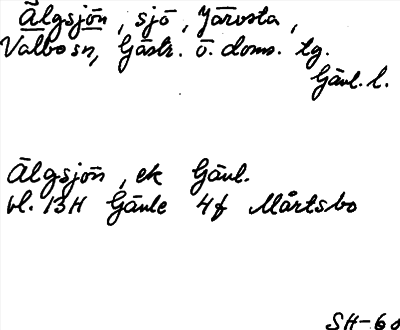 Älgsjön, sjö, Järvsta,
Valbo sn, Gästr. ö. doms. tg.
Gävl. l.
Älgsjön, ek Gävl.
bl. 13H Gävle 4f Mårtsbo
SH-68